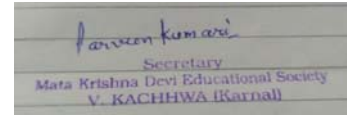 Parveen Kumari
Secretary
Mata Krishna Devi Educational Society
V. KACHHWA (Karnal)